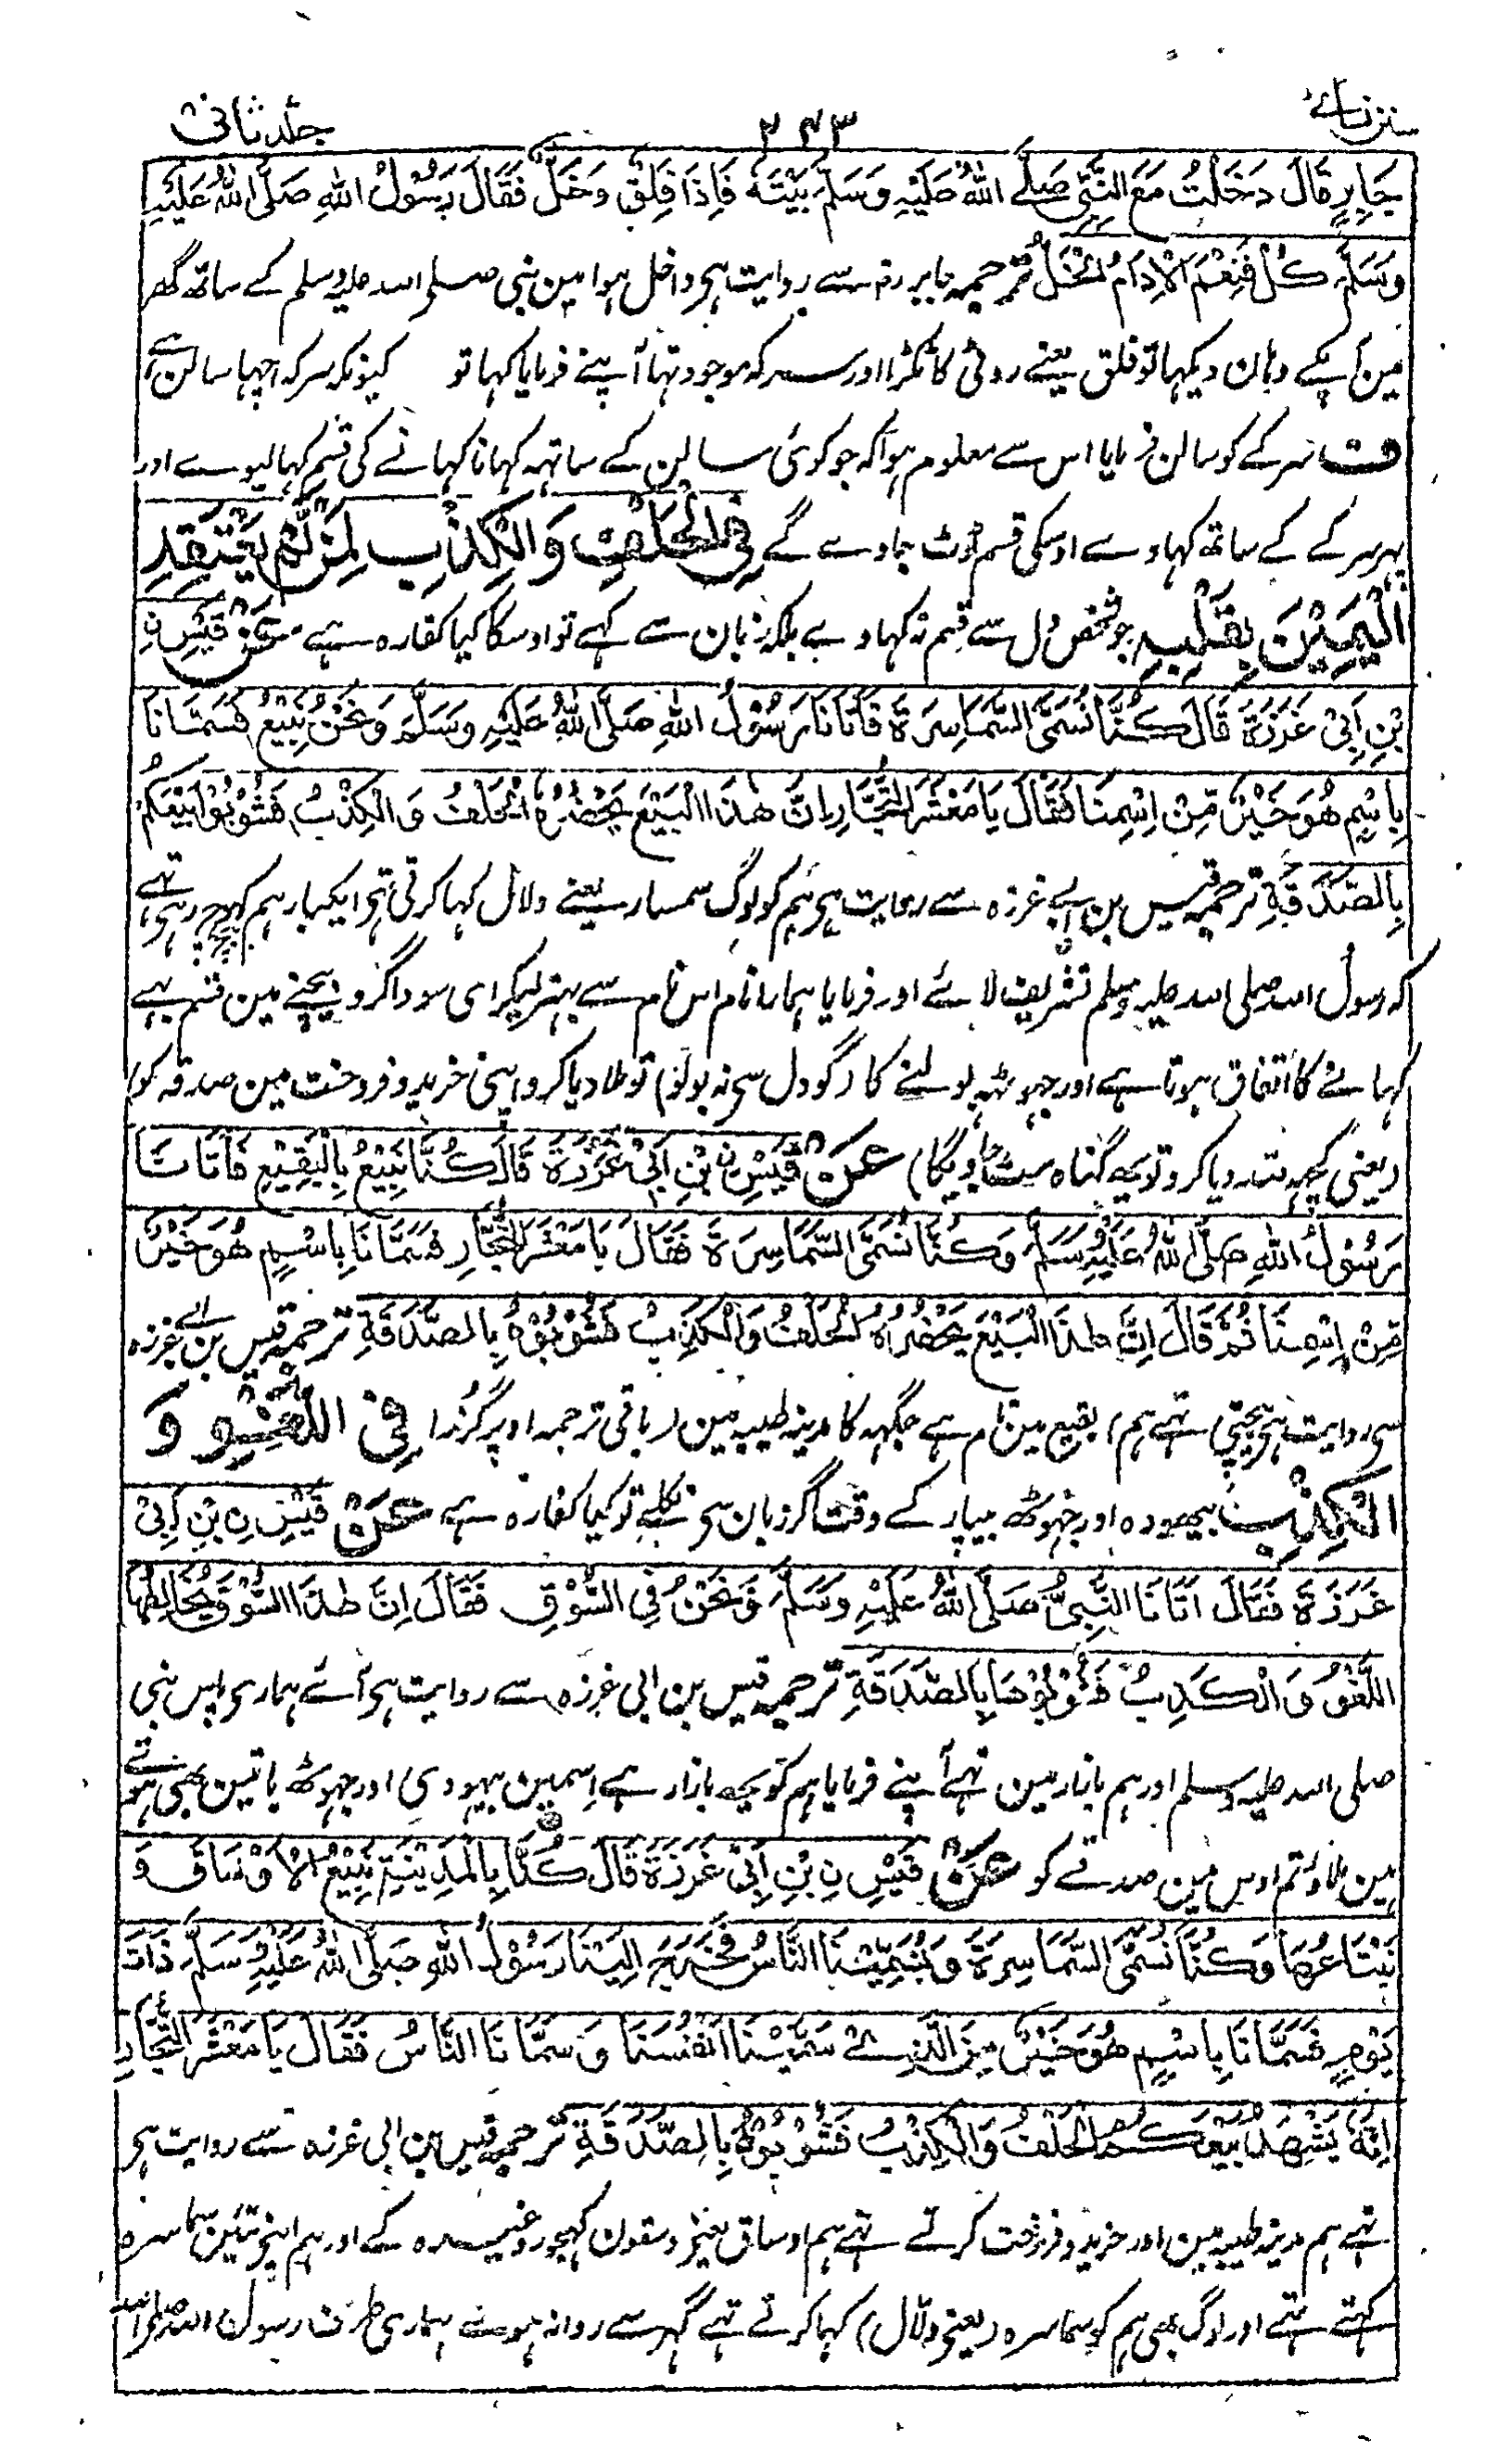 سنن نسائے ۲۴۳ جلد ثانی
جَابِرٍ قَالَ دَخَلْتُ مَعَ النَّبِيِّ صَلَّے اللّٰهُ عَلَيْهِ وَسَلَّمَ بَيْتَهٗ فَإِذَا فِلَقٌ وَخَلٌّ فَقَالَ رَسُوْلُ اللّٰهِ صَلَّى اللّٰهُ عَلَيْهِ
وَسَلَّمَ كُلْ فَنِعْمَ الْاِدَامُ الْخَلُّ ترجمہ جابر رضہ سے روایت ہی داخل ہوا مین نبی صلی اللہ علیہ وسلم کے ساتھ گھر
مین آپکے وہان دیکہا تو فلق یعنے روٹی کا ٹکڑا اور سرکہ موجود تہا آپنے فرمایا کہا تو کیونکہ سرکہ اچہا سالن ہے
ف سرکے کو سالن فرمایا اس سے معلوم ہوا کہ جو کوئی سالن کے ساتہہ کہانا کہانے کی قسم کہا لیوے اور
پہر سرکے کے ساتھ کہاوے اوسکی قسم ٹوٹ جاوے گے فِي الْحَلْفِ وَالْكِذْبِ لِمَنْ لَّمْ يَعْتَقِدِ
الْيَمِيْنَ بِقَلْبِهٖ جو شخص دل سے قسم نہ کہاوے بلکہ زبان سے کہے تو اوسکا کیا کفارہ ہے عَنْ قَيْسِ نِ
بْنِ اَبِيْ غَرَزَةَ قَالَ كُنَّا نُسَمَّى السَّمَاسِرَةَ فَاَتَانَا رَسُوْلُ اللّٰهِ صَلَّى اللّٰهُ عَلَيْهِ وَسَلَّمَ وَنَحْنُ نَبِيْعُ فَسَمَّانَا
بِاسْمٍ هُوَ خَيْرٌ مِّنْ اِسْمِنَا فَقَالَ يَا مَعْشَرَ التُّجَّارِ اِنَّ هٰذَا الْبَيْعَ يَحْضُرُهُ الْحَلْفُ وَالْكِذْبُ فَشُوْبُوْا بَيْعَكُمْ
بِالصَّدَقَةِ ترجمہ قیس بن ابے غرزہ سے روایت ہی ہم کو لوگ سمسار یعنے دلال کہا کرتی تہی ایکبار ہم بیچ رہی تہے
کہ رسول اللہ صلی اللہ علیہ وسلم تشریف لائے اور فرمایا ہمارا نام اس نام سے بہتر لیکر ای سوداگرو بیچنے مین قسم بہے
کہانے کا اتفاق ہوتا ہے اور جہوٹہہ بولنے کا (گو دل سی نہ بولو) تو ملا دیا کرو اپنی خرید و فروخت مین صدقہ کو
(یعنی کچہہ للہ دیا کرو تو یہ گناہ مٹ جاویگا) عَنْ قَيْسِ نِ بْنِ اَبِيْ غَرَزَةَ قَالَ كُنَّا نَبِيْعُ بِالْبَقِيْعِ فَاَتَانَا
رَسُوْلُ اللّٰهِ صَلَّى اللّٰهُ عَلَيْهِ وَسَلَّمَ وَكُنَّا نُسَمَّى السَّمَاسِرَةَ فَقَالَ يَا مَعْشَرَ التُّجَّارِ فَسَمَّانَا بِاسْمٍ هُوَ خَيْرٌ
مِّنْ اِسْمِنَا ثُمَّ قَالَ اِنَّ هٰذَا الْبَيْعَ يَحْضُرُهُ الْحَلْفُ وَالْكَذِبُ فَشُوْبُوْهُ بِالصَّدَقَةِ ترجمہ قیس بن ابے غرزہ
سی روایت ہی بیچتی تہے ہم (بقیع مین نام ہے جگہہ کا مدینہ طیبہ مین) باقی ترجمہ اوپر گزرا فِى اللَّغْوِ وَ
الْكِذْبِ بیہودہ اور جہوٹھ بیپار کے وقت اگر زبان سی نکلے تو کیا کفارہ ہے عَنْ قَيْسِ نِ بْنِ اَبِيْ
غَرَزَةَ فَقَالَ اَتَانَا النَّبِيُّ صَلَّى اللّٰهُ عَلَيْهِ وَسَلَّمَ وَنَحْنُ فِي السُّوْقِ فَقَالَ اِنَّ هٰذَا السُّوْقَ يُخَالِطُهَا
اللَّغْوُ وَالْكَذِبُ فَشُوْبُوْهَا بِالصَّدَقَةِ ترجمہ قیس بن ابی غرزہ سے روایت ہی آئے ہماری پاس نبی
صلی اللہ علیہ وسلم اور ہم بازار مین تہے آپنے فرمایا ہم کو یہ بازار ہے اسمین بیہودی اور جہوٹھ باتین بھی ہوتے
ہین ملاؤ تم اوس مین صدقے کو عَنْ قَيْسِ نِ بْنِ اَبِيْ غَرَزَةَ قَالَ كُنَّا بِالْمَدِيْنَةِ نَبِيْعُ الْاَوْسَاقَ وَ
نَبْتَاعُهَا وَكُنَّا نُسَمَّى السَّمَاسِرَةَ وَيُسَمِّيْنَا النَّاسُ فَخَرَجَ اِلَيْنَا رَسُوْلُ اللّٰهِ صَلَّى اللّٰهُ عَلَيْهِ وَسَلَّمَ ذَاتَ
يَوْمٍ فَسَمَّانَا بِاسْمٍ هُوَ خَيْرٌ مِنَ الَّذِيْ سَمَّيْنَا اَنْفُسَنَا وَسَمَّانَا النَّاسُ فَقَالَ يَا مَعْشَرَ التُّجَّارِ
اِنَّهٗ يَشْهَدُ بَيْعَكُمُ الْحَلْفُ وَالْكِذْبُ فَشُوْبُوْهُ بِالصَّدَقَةِ ترجمہ قیس بن ابی غرزہ سے روایت ہی
تہے ہم مدینہ طیبہ مین اور خرید و فروخت کرتے تہے ہم اوساق یعنی وسقون کہجور وغیرہ کے اور ہم اپنی تئین سماسرہ
کہتے تہے اور لوگ بھی ہم کو سماسرہ (یعنی دلال) کہا کرتے تہے گہر سے روانہ ہوئے ہماری طرف رسول اللہ صلی اللہ